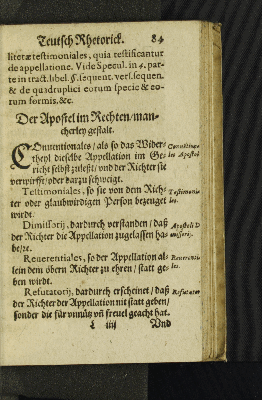 Teutsch Rhetorick. 84
literæ testimoniales, quia testificantur
de appellatione. Vide Specul. in 4. par-
te in tract. libel. §. sequent. vers. sequen.
& de quadruplici eorum specie & eo-
rum formis, &c.
Der Apostel im Rechten / man-
cherley gestalt.
COnuentionales / als so das Wider-
theyl dieselbe Appellation im Ge-
richt selbst zuleßt / und der Richter sie
verwirfft / oder darzu schweigt.
Testimoniales, so sie von dem Rich-
ter oder glaubwirdigen Person bezeuget
wirdt.
Dimissorij, dardurch verstanden / daß
der Richter die Appellation zugelassen ha-
be / ꝛc.
Reuerentiales, so der Appellation al-
lein dem öbern Richter zu ehren / statt ge-
ben wirdt.
Refutatorij, dardurch erscheinet / daß
der Richter der Appellation nit statt geben /
sonder die für unnütz uñ freuel geacht hat.
L iiij Und
les Apostoli
Testimonia-
les.
Apostoli D
missorij.
Reuerentia-
les.
Refutator